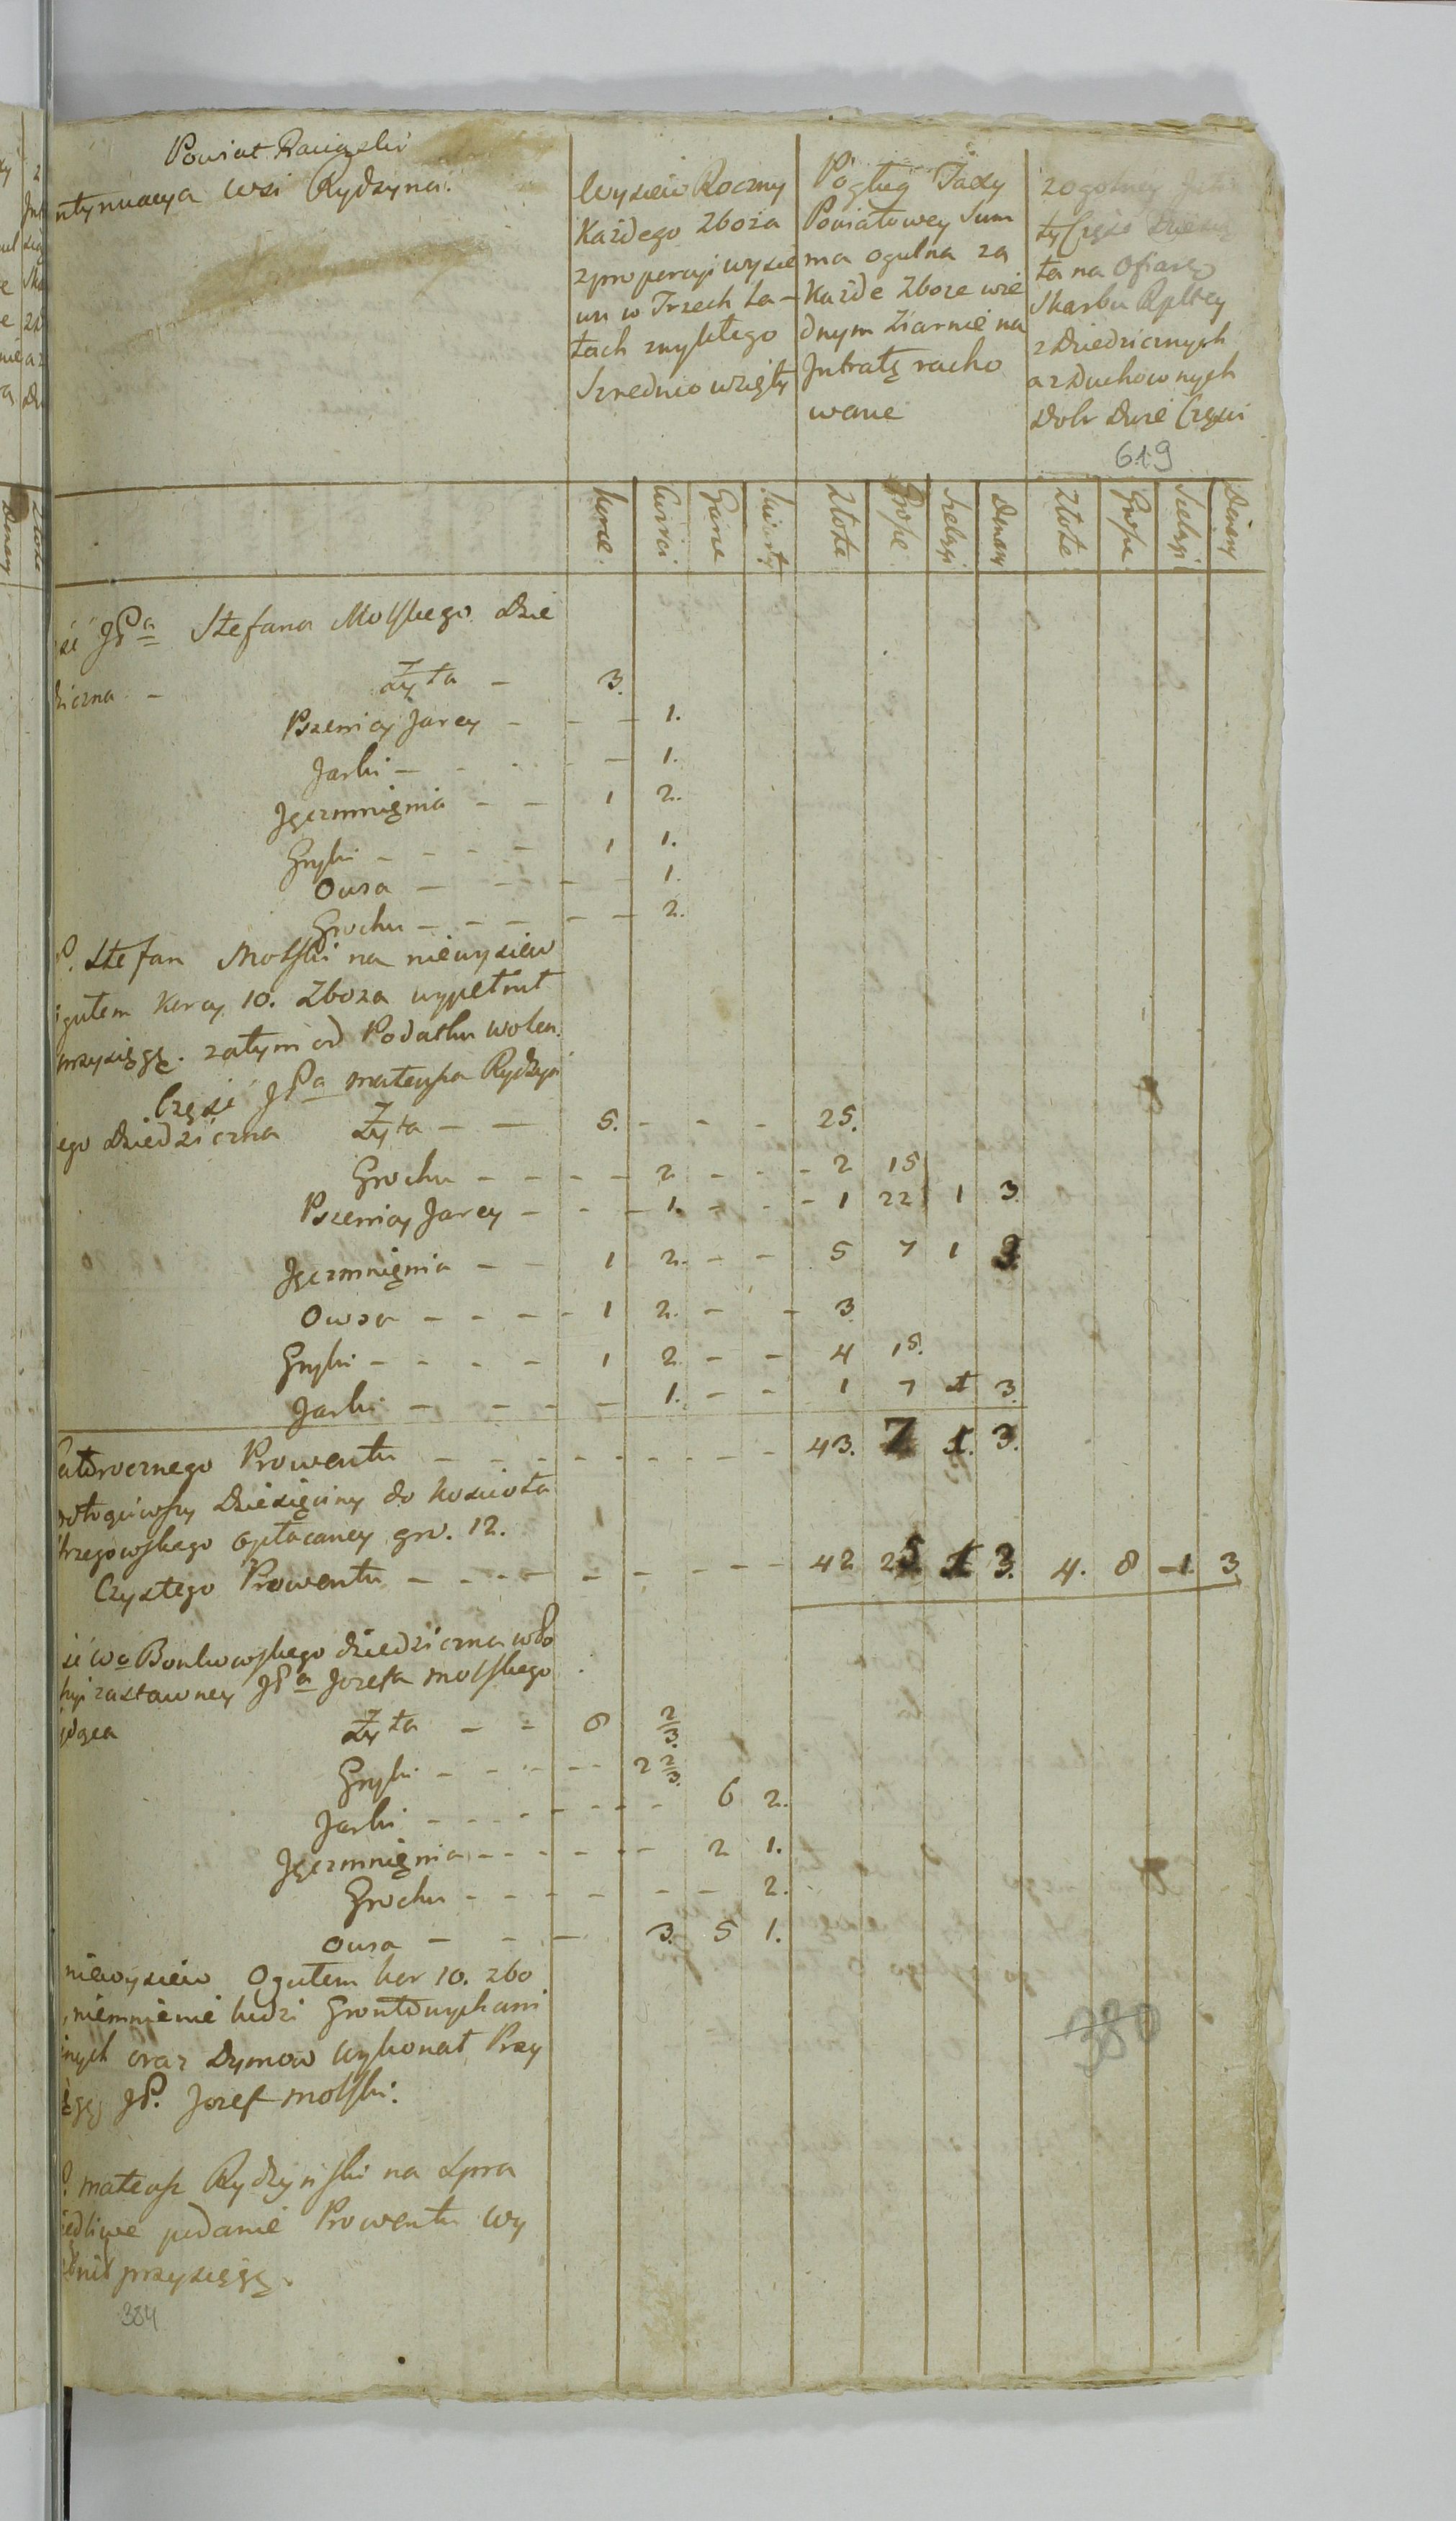 Powiat Raciązki
ntynuacya wsi Rydzyna.
Wysiew Roczny
Każdego Zboża
zproporcyi wysie
wu w Trzech La-
tach zwykłego
Szrednio wzięty
Pògług Taxy
Powiatowey Sum
ma ogulna za
Każde Zboże wie
dnym Ziarnie na
Jntratę racho
wane
zogolney Jntra
ty Część Dziesią
ta na Ofiarę
Skarbu Rpltey
z Dziedzicznych
a z Duchownych
Dobr Dwie Części
619
Korce Cwierci Garce kwarty Złote Grosze Szelągi Denary Złote Grosze Szelągi Denary
ść JPa Stefana Molskiego Dzie
dziczna - Żyta - 3.
Pszenicy Jarey - - - 1.
Jarki - - - - 1.
Jęczmnięnia - - 1 2.
Gryki - - - - 1 1.
Owsa - - - - 1.
Grochu - - - - - 2.
P. Stefan Molski na niewysiew
gułem Korcy 10. Zboza wypełnił
przysięgę. zatym od Podatku wolen.
Część JPa Mateusza Rydzyń
ego Dziedziczna Żyta - - 5. - - - 25.
Grochu - - - - 2 - - - 2 15
Pszenicy Jarey - - - 1. - - - 1 22 1 3
Jęczmnięnia - - 1 2. - - 5 7 1 3.
Owsa - - - - 1 2. - - 3
Gryki - - - - 1 2 - - 4 15.
Jarki - - - - 1. - - 1 7 1 3.
Całorocznego Prowentu - - - - - - - - 43. 7 1. 3.
Dziesięciny do Koscioła
trzegowskego opłacaney gr. 12.
Czystego Prowentu - - - - - - - - 42 25 1 3. 4. 8 -1. 3.
ść Wo Bonkowskego dziedziczna w Po
syi zastawney JPa Jozefa Molskego
ijąca Żyta - - 6 2/3.
Gryki - - - - - 2 2/3.
Jarki - - - - - - - 6 2.
Jęczmnięnia - - - - - - 2 1.
Grochu - - - - - - 2.
Owsa - - - 3. 5 1.
niewysiew Ogułem kor 10. zbo
, niemnieie ludzi Grontowych ani
innych oraz Dymow wykonał Przy
ęgę JP. Jozef Molski.
P. Mateusz Rydzyński na Spra
iedliwe podanie Prowentu Wy
łnił przysięgę.
384
380